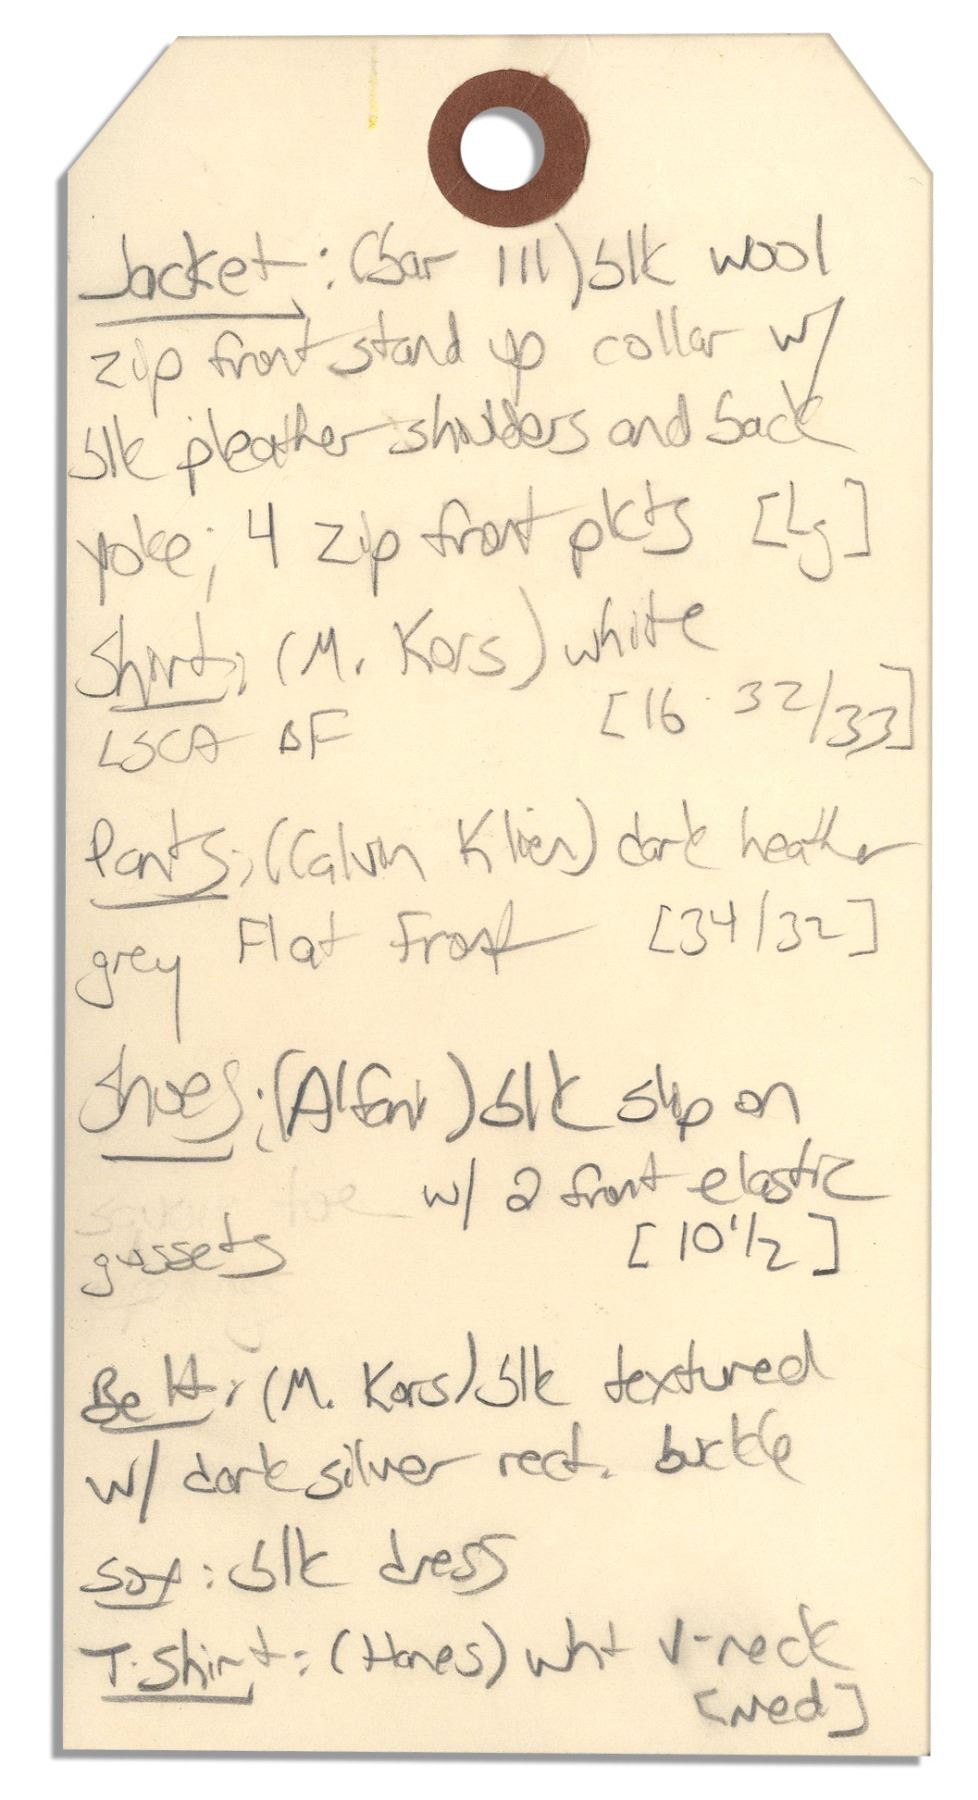 Jacket: (Bar III) blk wool
zip front stand up collar w/
blk pleather shoulders and back
yoke; 4 zip front pkts [Lg]
Shirt: (M. Kors) white
LSCA BF [16 32/33]
Pants: (Calvin Klien) dark heather
grey Flat Front [34/32]
Shoes: (Alfani) blk slip on
w/ 2 front elastic
gussets [10 1/2]
Belt: (M. Kors) blk textured
w/ dark silver rect. buckle
Sox: blk dress
T-Shirt: (Hanes) wht V-neck
[Med]